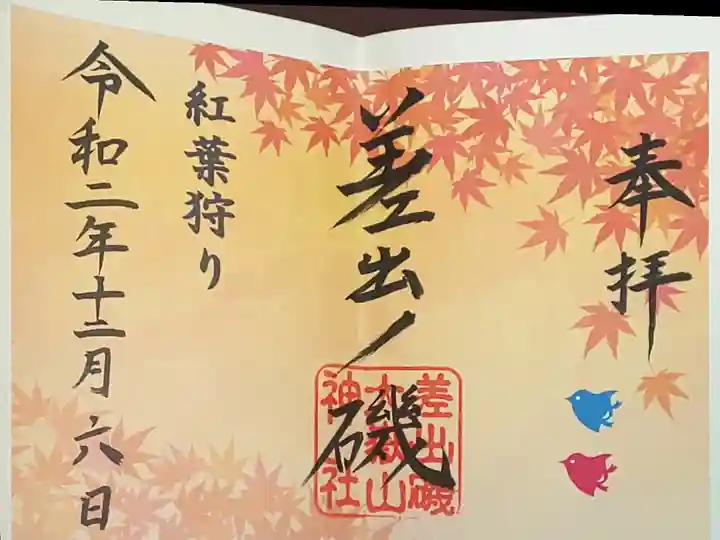 奉拝
差出ノ磯
差出磯
大嶽山
神社
紅葉狩り
令和二年十二月六日